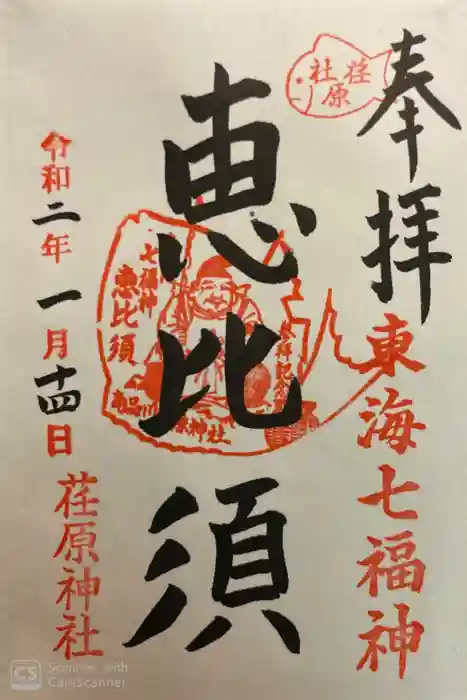 奉拝
東海七福神
荏原
社
恵比須
七福神
恵比須
令和二年一月十四日
荏原神社
CS Scanned with
CamScanner